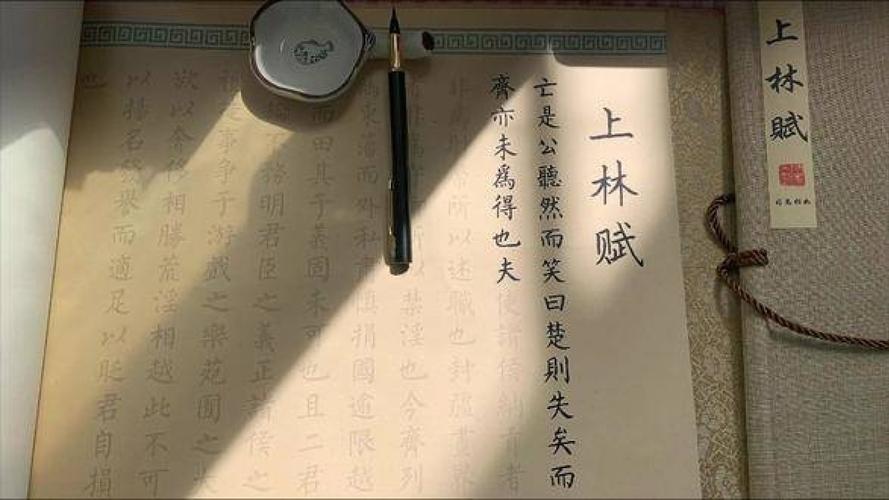 上林賦
上林赋
亡是公聽然而笑曰楚則失矣而
齊亦未爲得也夫使諸侯納貢者
非爲財幣所以述職也封疆畫界
所以禁淫也今齊列
東藩而外私肅慎捐國逾限越
而田其于義固未可也且二君
不務明君臣之義正諸侯之
事争于游戲之樂苑囿之大
欲以奢侈相勝荒淫相越此不可
以揚名發譽而適足以貶君自損
也